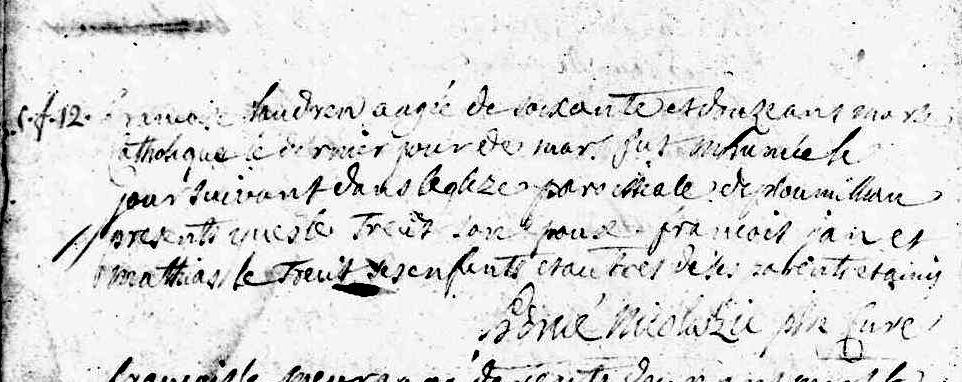 s.f.12. francoise haudren aagée de soixante et douze ans morte
catholique le dernier jour de mars fut inhumée le
jour suivant dans leglize parochiale de ploumilliau
presents yves le Treut son epoux francois jan et
mathias le Treut ses enfants et autres de ses parents et amis
curé
francois le